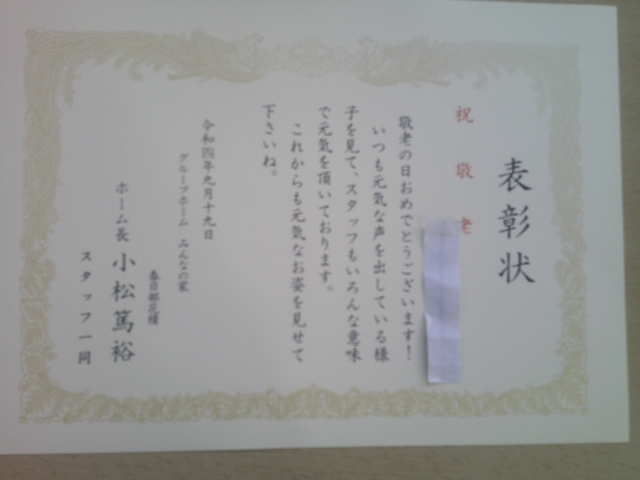 表彰状
祝敬老
敬老の日おめでとうございます！
いつも元気な声を出している様
子を見て、スタッフもいろんな意味
で元気を頂いております。
これからも元気なお姿を見せて
下さいね。
令和四年九月十九日
グループホーム みんなの家
春日部花積
ホーム長 小松篤裕
スタッフ一同